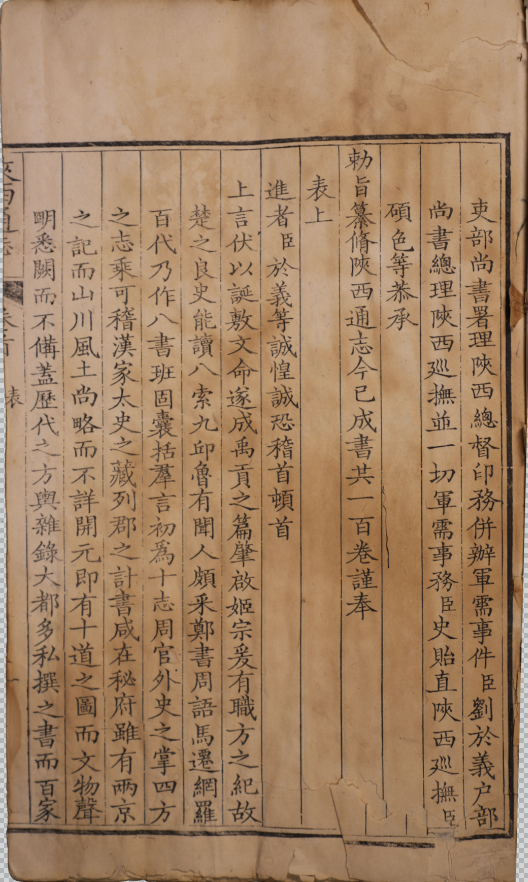 吏部尚書署理陝西總督印務併辦軍需事件臣劉於義户部
尚書總理陝西廵撫並一切軍需事務臣史貽直陝西廵撫臣
碩色等恭承
勅旨纂脩陝西通志今已成書共一百卷謹奉
表上
進者臣於義等誠惶誠恐稽首頓首
上言伏以誕敷文命遂成禹貢之篇肇啟姬宗爰有職方之紀故
楚之良史能讀八索九邱魯有聞人頗采鄭書周語馬遷網羅
百代乃作八書班固囊括羣言初為十志周官外史之掌四方
之志乘可稽漢家太史之藏列郡之計書咸在秘府雖有兩京
之記而山川風土尚略而不詳開元即有十道之圖而文物聲
明悉闕而不備蓋歷代之方輿雜錄大都多私撰之書而百家
表